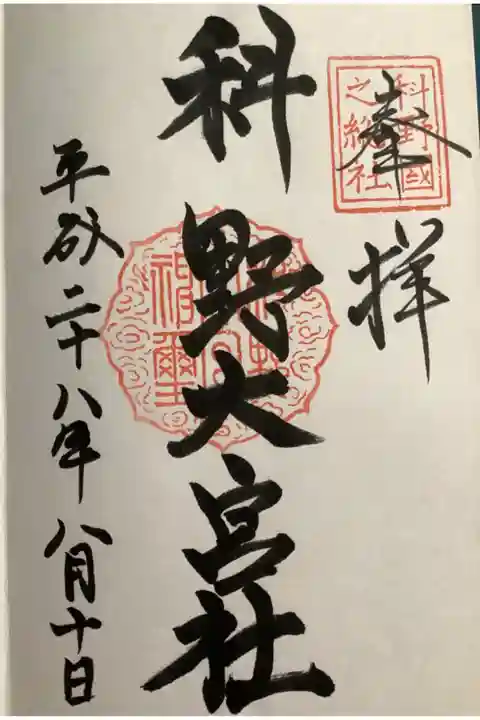 奉拝
科野國
之総社
科野大宮社
平成二十八年八月十日